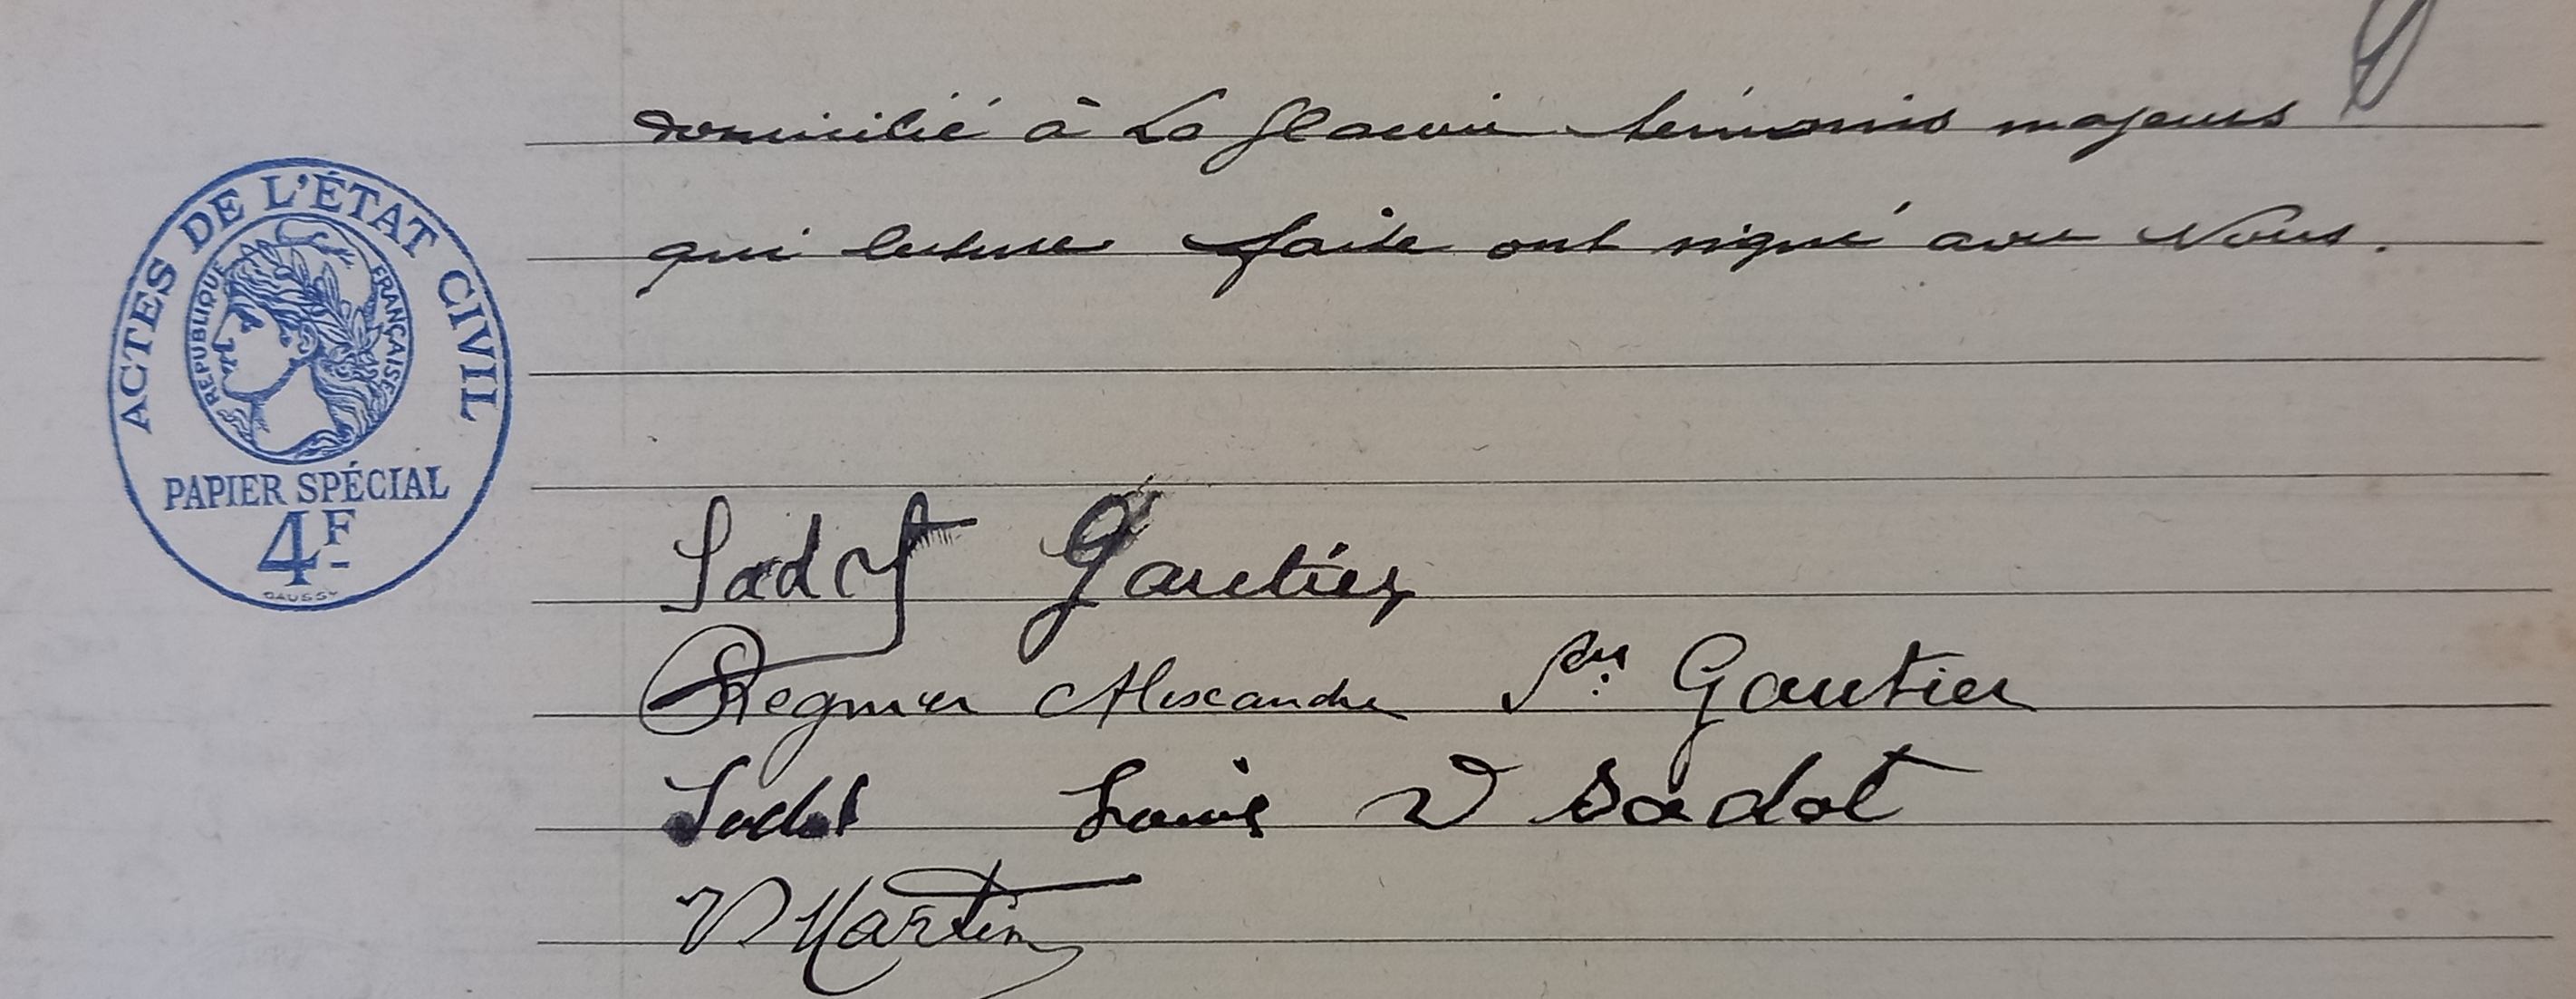 domicilié à La témoins majeurs
qui lecture faite ont signé avec Nous.
ACTES DE L'ÉTAT CIVIL
RÉPUBLIQUE FRANÇAISE
PAPIER SPÉCIAL
4F
DAUSSY
Sadot Gautier
Regnier Alexandre Gautier
Sadot Louis V Sadot
V Martin